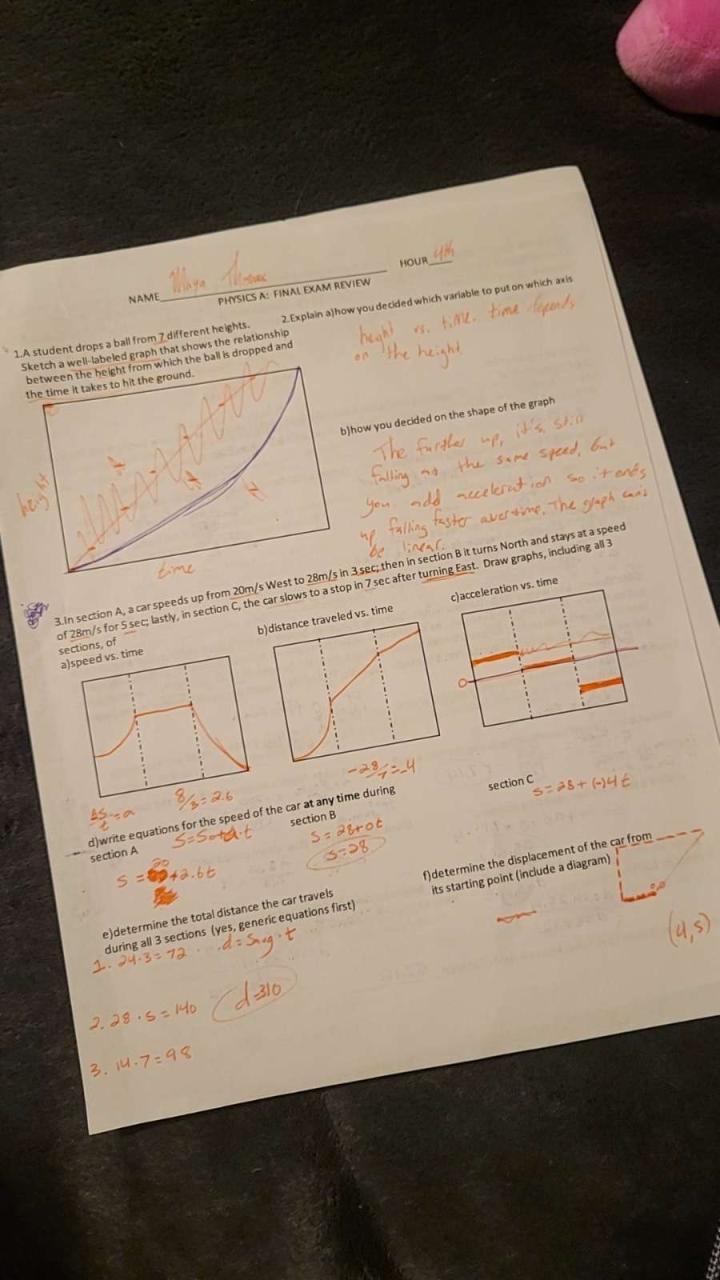 NAME Maya
HOUR 4th
PHYSICS A: FINAL EXAM REVIEW
1.A student drops a ball from 7 different heights.
Sketch a well-labeled graph that shows the relationship
between the height from which the ball is dropped and
the time it takes to hit the ground.
height
time
2.Explain a)how you decided which variable to put on which axis
height vs. time. time depends
on the height
b)how you decided on the shape of the graph
The further up, it's still
falling at the same speed, but
you add acceleration so it ends
up falling faster overtime. The graph can't
be linear.
3.In section A, a car speeds up from 20m/s West to 28m/s in 3 sec; then in section B it turns North and stays at a speed
of 28m/s for 5 sec; lastly, in section C, the car slows to a stop in 7 sec after turning East. Draw graphs, including all 3
sections, of
a)speed vs. time
b)distance traveled vs. time
c)acceleration vs. time
0
ΔS/t = a
8/3 = 2.6
-28/7 = -4
d)write equations for the speed of the car at any time during
section A
S=So+a·t
section B
section C
S = 20+2.6t
S = 28+0t
S=28
S = 28+(-)4t
e)determine the total distance the car travels
during all 3 sections (yes, generic equations first)
1. 24·3=72
d=Savg·t
2. 28·5=140
d=310
3. 14·7=98
f)determine the displacement of the car from
its starting point (include a diagram)
(4,5)